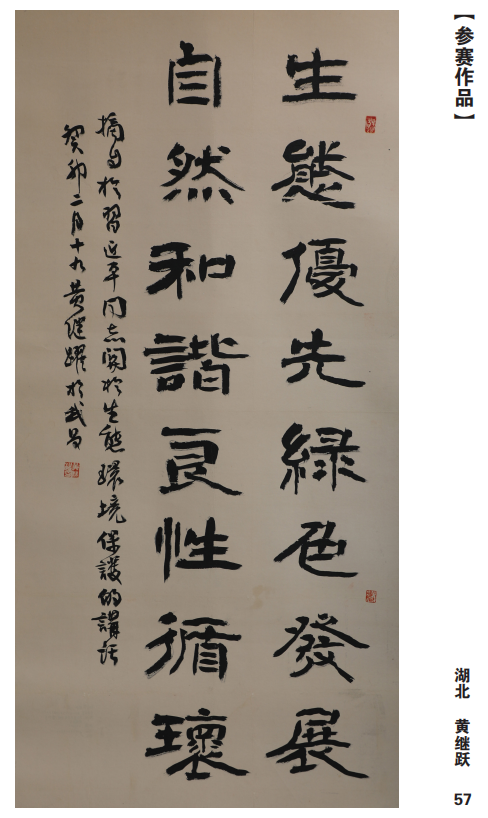 【参赛作品】
湖北 黄继跃
57
生態優先綠色發展
自然和諧良性循環
摘自於習近平同志關於生態環境保護的講話
癸卯二月十九黃繼躍於武昌